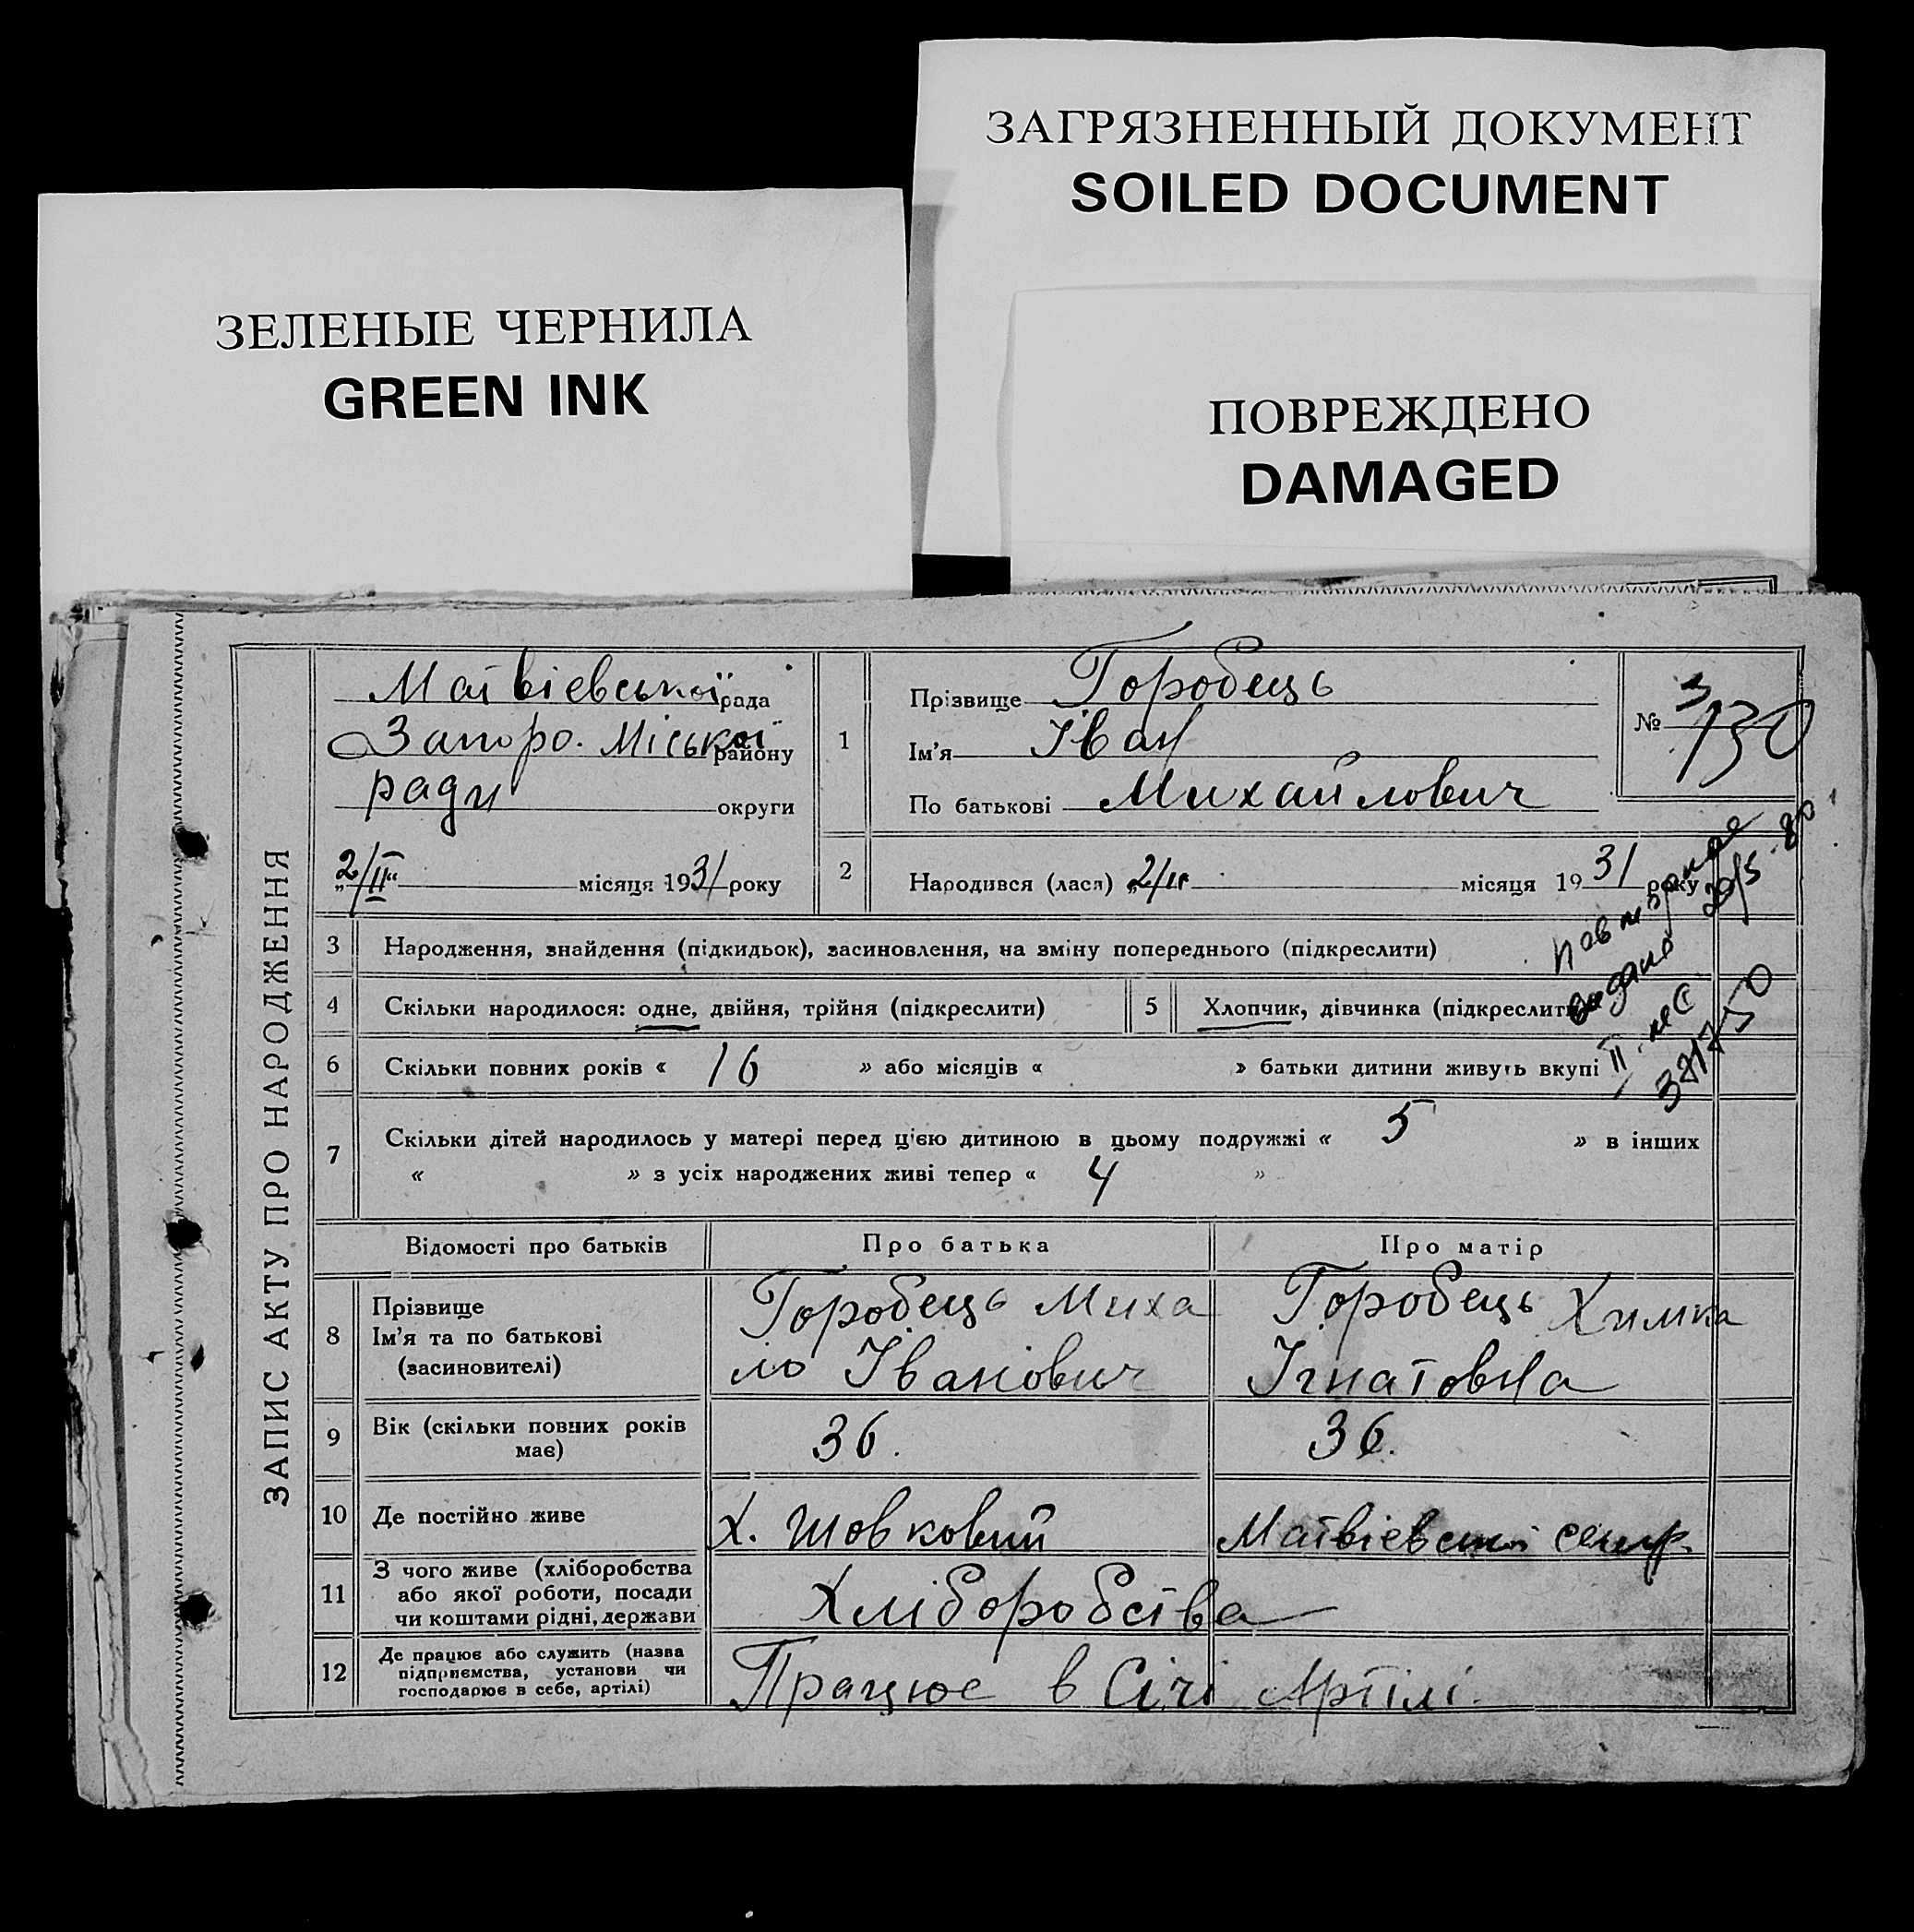 ЗАГРЯЗНЕННЫЙ ДОКУМЕНТ
SOILED DOCUMENT
ЗЕЛЕНЫЕ ЧЕРНИЛА
GREEN INK
ПОВРЕЖДЕНО
DAMAGED
ЗАПИС АКТУ ПРО НАРОДЖЕННЯ
Матвіевської рада
Запоро. Міської району
ради округи
„2/II“ місяця 1931 року
1
Прізвище Городець
Ім'я Іван
По батькові Михайлович
№ 3
130
2
Народився (лася) „2/II місяця 1931 року
3 Народження, знайдення (підкидьок), засиновлення, на зміну попереднього (підкреслити)
4 Скільки народилося: одне, двійня, трійня (підкреслити)
5 Хлопчик, дівчинка (підкреслити)
Повторное
видано 20/5-80
6 Скільки повних років « 16 » або місяців « » батьки дитини живуть вкупі
7 Скільки дітей народилось у матері перед ц'єю дитиною в цьому подружжі « 5 » в інших
« » з усіх народжених живі тепер « 4 »
Відомості про батьків Про батька Про матір
8 Прізвище
Ім'я та по батькові
(засиновителі)
Городець Миха
ло Іванович
Городець Химка
Ігнатовна
9 Вік (скільки повних років
має)
36.
36.
10 Де постійно живе
Х. Шовковий
Матвіевської
11 З чого живе (хліборобства
або якої роботи, посади
чи коштами рідні, держави
Хліборобства
12 Де працює або служить (назва
підприємства, установи чи
господарює в себе, артілі)
Працює в Січі Артілі.